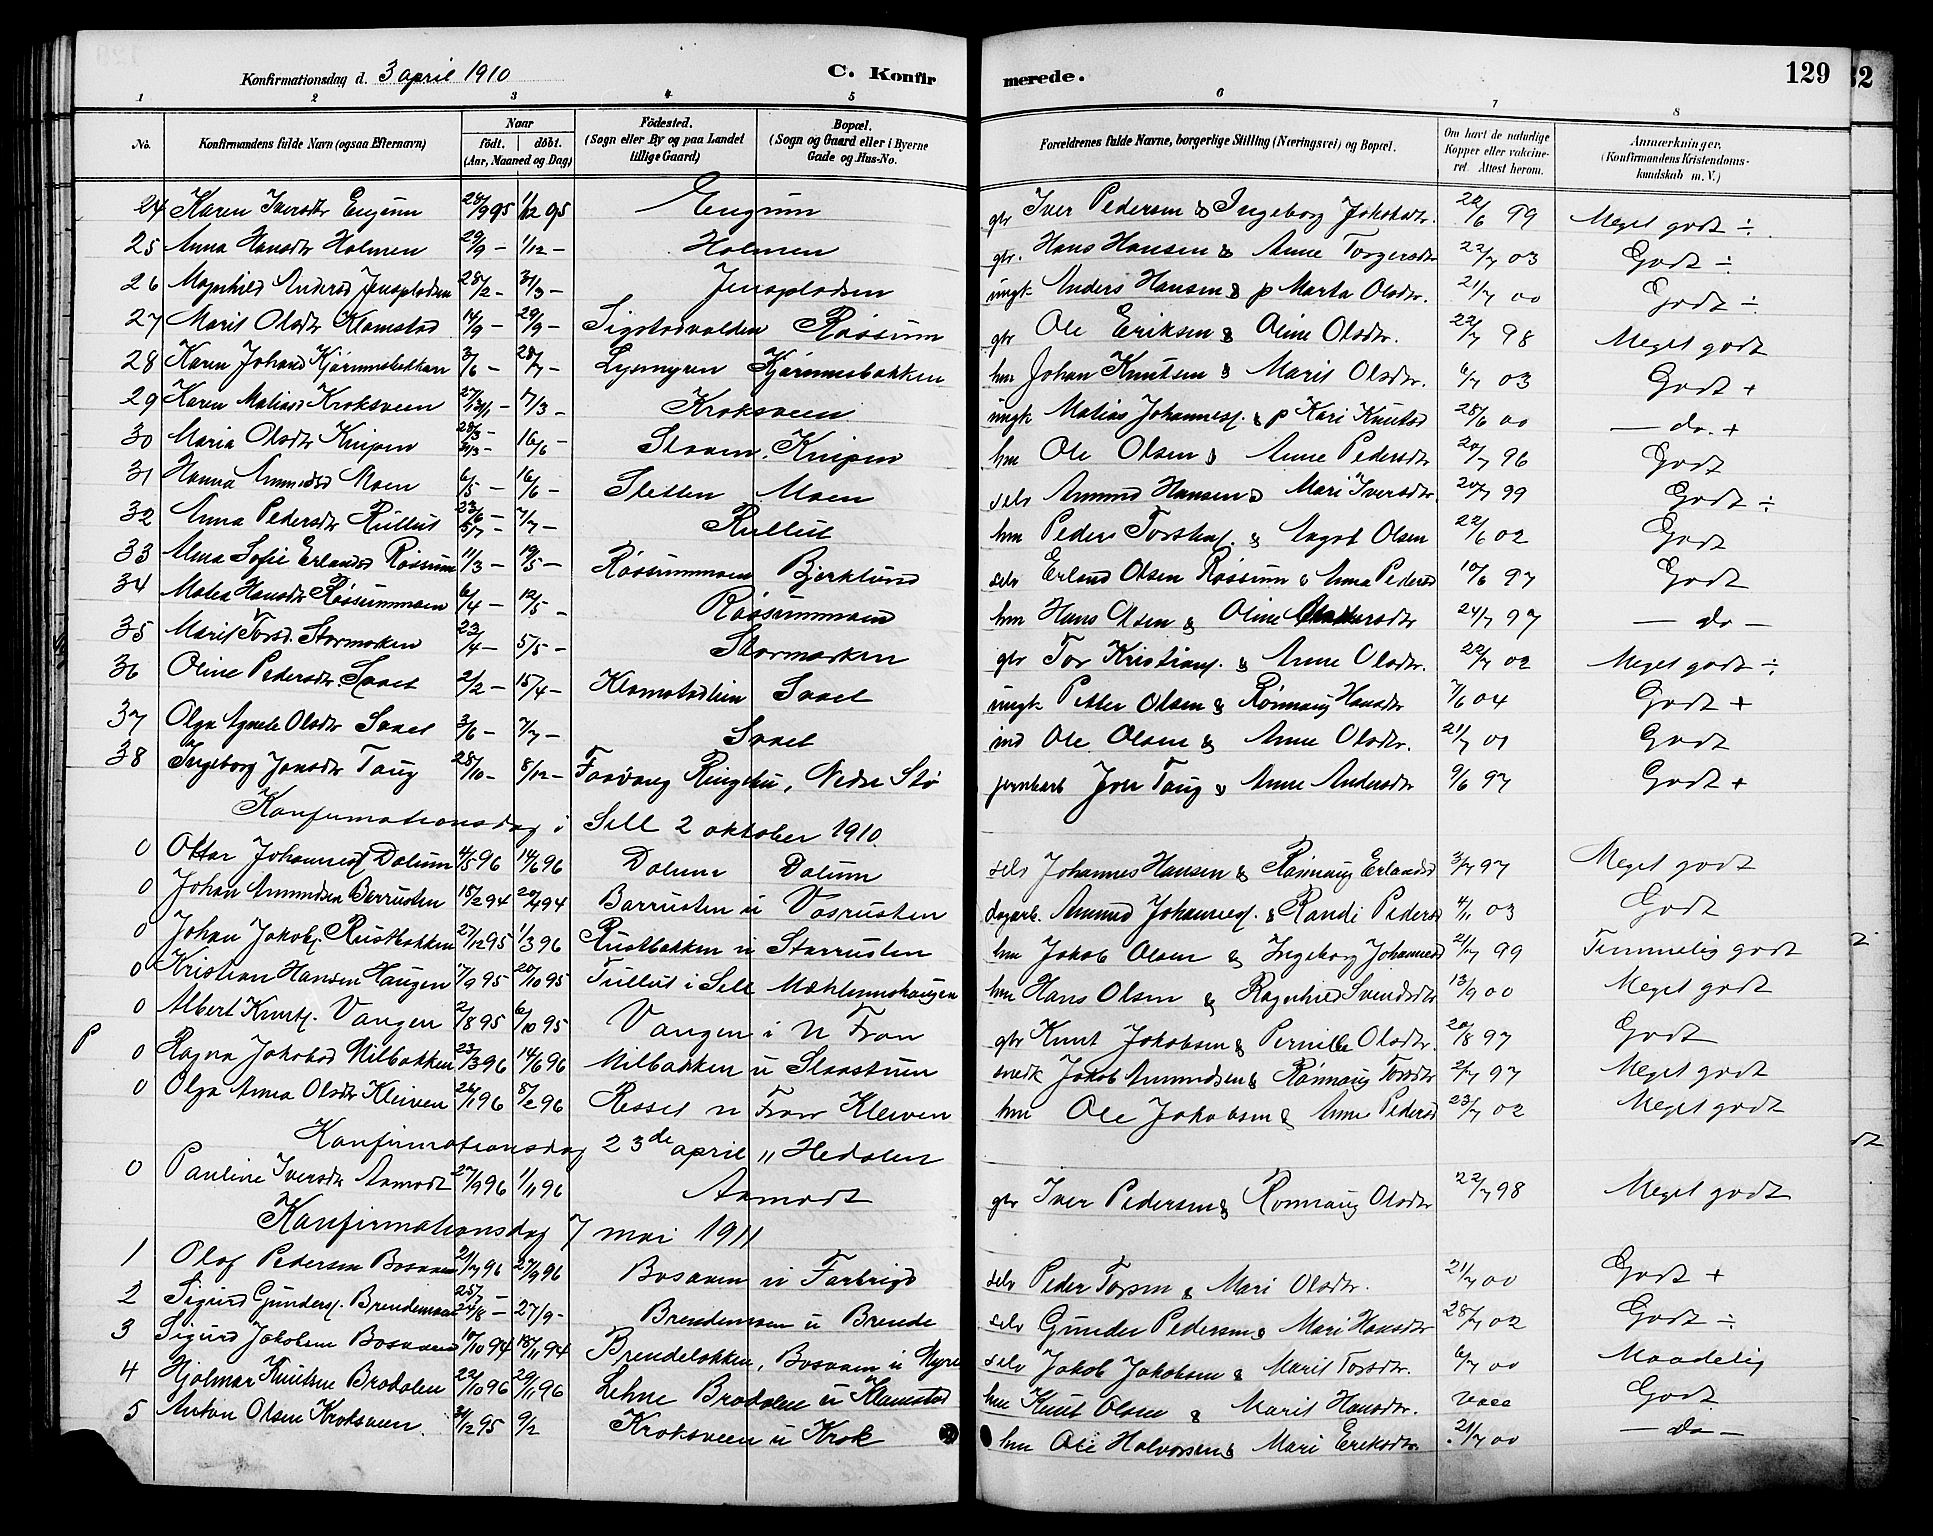 Konfirmationsdag d. 3 april 1910 C. Konfirmerede. 129
1 2 3 4 5 6 7 8
No. Konfirmandens fulde Navn (ogsaa Efternavn) Naar födt. döbt. (Aar, Maaned og Dag) Födested. (Sogn eller By og paa Landet tillige Gaard) Bopæl. (Sogn og Gaard eller i Byerne Gade og Hus-No. Forældrenes fulde Navne, borgerlige Stilling (Næringsvei) og Bopæl. Om havt de naturlige Kopper eller vakcineret. Attest herom. Anmærkninger, (Konfirmandens Kristendomskundskab m. V.)
24 Karen Iversdtr Engum 28/9 95 1/12 95 Engum gbr Iver Pedersen & Ingeborg Jakobsdtr. 22/6 99 Meget godt ÷
25 Anna Hansdtr Holmen 29/9 - 1/12 - Holmen gbr. Hans Hansen & Anne Torgersdtr 22/7 03 Godt ÷
26 Magnhild Andersd Jensplodsen 28/2 - 31/3 - Jensplodsen ungk Anders Hansen & p Marta Olsdtr. 21/7 00 Godt ÷
27 Marit Olsdtr Klomstad 14/9 - 29/9 - Sigstadvolden Røssum gbr Ole Eriksen & Oline Olsdtr. 22/7 98 Meget godt
28 Karen Johansd Kjørumsbakken 3/6 - 28/7 - Lysmyren Kjørumsbakken hm Johan Knutsen & Marit Olsdtr. 6/7 03 Godt +
29 Karen Matiasd Kroksveen 27/1 - 17/3 - Kroksveen ungk Matias Johannes. & p Kari Knutsd 28/6 00 - do. +
30 Maria Olsdtr Knipen 28/3 - 31/3 - 16/6 - Sloaen, Knipen hm Ole Olsen & Anne Pedersdtr 20/7 96 Godt
31 Hanna Amundsd Moen 6/5 - 16/6 - Sletten Moen selv Amund Hansen & Mari Iversdtr 20/7 99 Godt ÷
32 Anna Pedersdtr Rullut 23/6 - 5/7 - 7/7 - Rullut hm Peder Torstens. & Ingeb Olsen 22/6 02 Godt
33 Alma Sofie Erlandsd Røssum 11/3 - 19/5 - Røssummoen Bjerklund selv Erland Olsen Røssum & Anna Pedersd 10/6 97 Godt
34 Malea Hansdtr Røssummoen 6/4 - 12/5 - Røssummoen hm Hans Olsen & Oline 24/7 97 - do -
35 Marit Torsd. Stormorken 23/4 - 5/5 - Stormorken gbr Tor Kristians. & Anne Olsdtr. 22/7 02 Meget godt ÷
36 Oline Pedersdtr. Svael 2/2 - 15/4 - Klomstadlien Svael ungk Petter Olsen & Rønnaug Hansdtr 7/6 04 Godt +
37 Olga Agnete Olsdtr Svael 3/6 - 7/7 - Svael ind Ole Olsen & Anne Olsdtr. 21/7 01 Godt
38 Ingeborg Jonsdtr Taug 28/10 - 8/12 - Faavang Ringebu, Nedre Stø jernbarb Iver Taug & Anne Andersdtr 9/6 97 Godt +
Konfirmationsdag i Sell 2 oktober 1910
0 Ottar Johannes Dalum 4/5 96 14/6 96 Dalum Dalum selv Johannes Hansen & Rønnaug Erlandsd 3/7 97 Meget godt
0 Johan Amundsen Barrusten 15/2 94 20/4 94 Barrusten u Vasrusten dagarb. Amund Johannes. & Randi Pedersd 4/11 03 Godt
0 Johan Jakobs. Rustbakken 27/12 95 1/3 96 Rustbakken u Storrusten hm Jakob Olsen & Ingeborg Johannesd 21/7 99 Temmelig godt
0 Kristian Hansen Haugen 7/9 95 20/10 95 Tullut i Sell Mæhlumshaugen hm Hans Olsen & Ragnhild Svendsdtr 13/9 00 Meget godt
0 Albert Knuts. Vangen 2/8 95 6/10 95 Vangen i N Fron gbr Knut Jakobsen & Pernille Olsdtr. 20/8 97 Godt
P 0 Ragna Jakobsd Nilbakken 23/3 96 14/6 96 Nilbakken u Slaastuen snedk Jakob Amundsen & Rønnaug Torsdtr 2/7 97 Meget godt
0 Olga Anna Olsdtr Kleiven 26/1 96 8/2 96 Ressel N Fron Kleiven hm Ole Jakobsen & Anne Pedersd 23/7 02 Meget godt
Konfirmationsdag 23de april " Hedalen
0 Pauline Iversdtr Aamodt 27/9 96 1/11 96 Aamodt gbr Iver Pedersen & Rønnaug Olsdtr 22/7 98 Meget godt
Konfirmationsdag 7 mai 1911
1 Olaf Pedersen Bosaaen 21/7 96 27/9 96 Bosaaen u Forbrigd selv Peder Torsen & Mari Olsdtr. 21/7 00 Godt +
2 Sigurd Gunders. Brendemoen 25/7 - 24/8 - 27/9 - Brendemoen u Brende selv Gunder Pedersen & Mari Hansdtr 28/7 02 Godt ÷
3 Sigurd Jakobsen Bosaaen 10/10 94 18/11 94 Brendeløkken, Bosaaen u Myre selv Jakob Jakobsen & Marit Torsdtr. 6/7 00 Maadelig
4 Hjalmar Knutsen Brodalen 22/10 96 29/11 96 Lehne Brodalen u Klomstad hm Knut Olsen & Marit Hansdtr. vacc Godt
5 Anton Olsen Kroksveen. 31/12 95 9/2 Kroksveen u Krok hm Ole Halvorsen & Mari Eriksdtr. 21/7 00 - do -